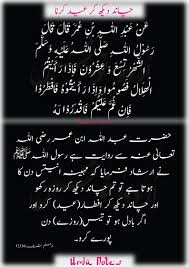 چاند دیکھ کر عید کرنا
عَنْ عَبْدِ اللّٰهِ بْنِ عُمَرَ قَالَ قَالَ
رَسُولُ اللّٰهِ صَلَّى اللّٰهُ عَلَيْهِ وَسَلَّمَ
الشَّهْرُ تِسْعٌ وَعِشْرُونَ فَإِذَا رَأَيْتُمُ
الْهِلَالَ فَصُومُوا وَإِذَا رَأَيْتُمُوهُ فَأَفْطِرُوا
فَإِنْ غُمَّ عَلَيْكُمْ فَاقْدُرُوا لَهُ
حضرت عبد اللہ ابن عمر رضی اللہ
تعالی عنہ سے روایت ہے رسول اللہ ﷺ
نے ارشاد فرمایا کہ مہینہ انتیس دن کا
ہوتا ہے تو تم چاند دیکھ کر روزہ رکھو
اور چاند دیکھ کر افطار (عید) کرو اور
اگر بادل ہو تو تیس (روزے) دن
پورے کرو۔
Urdu Notes